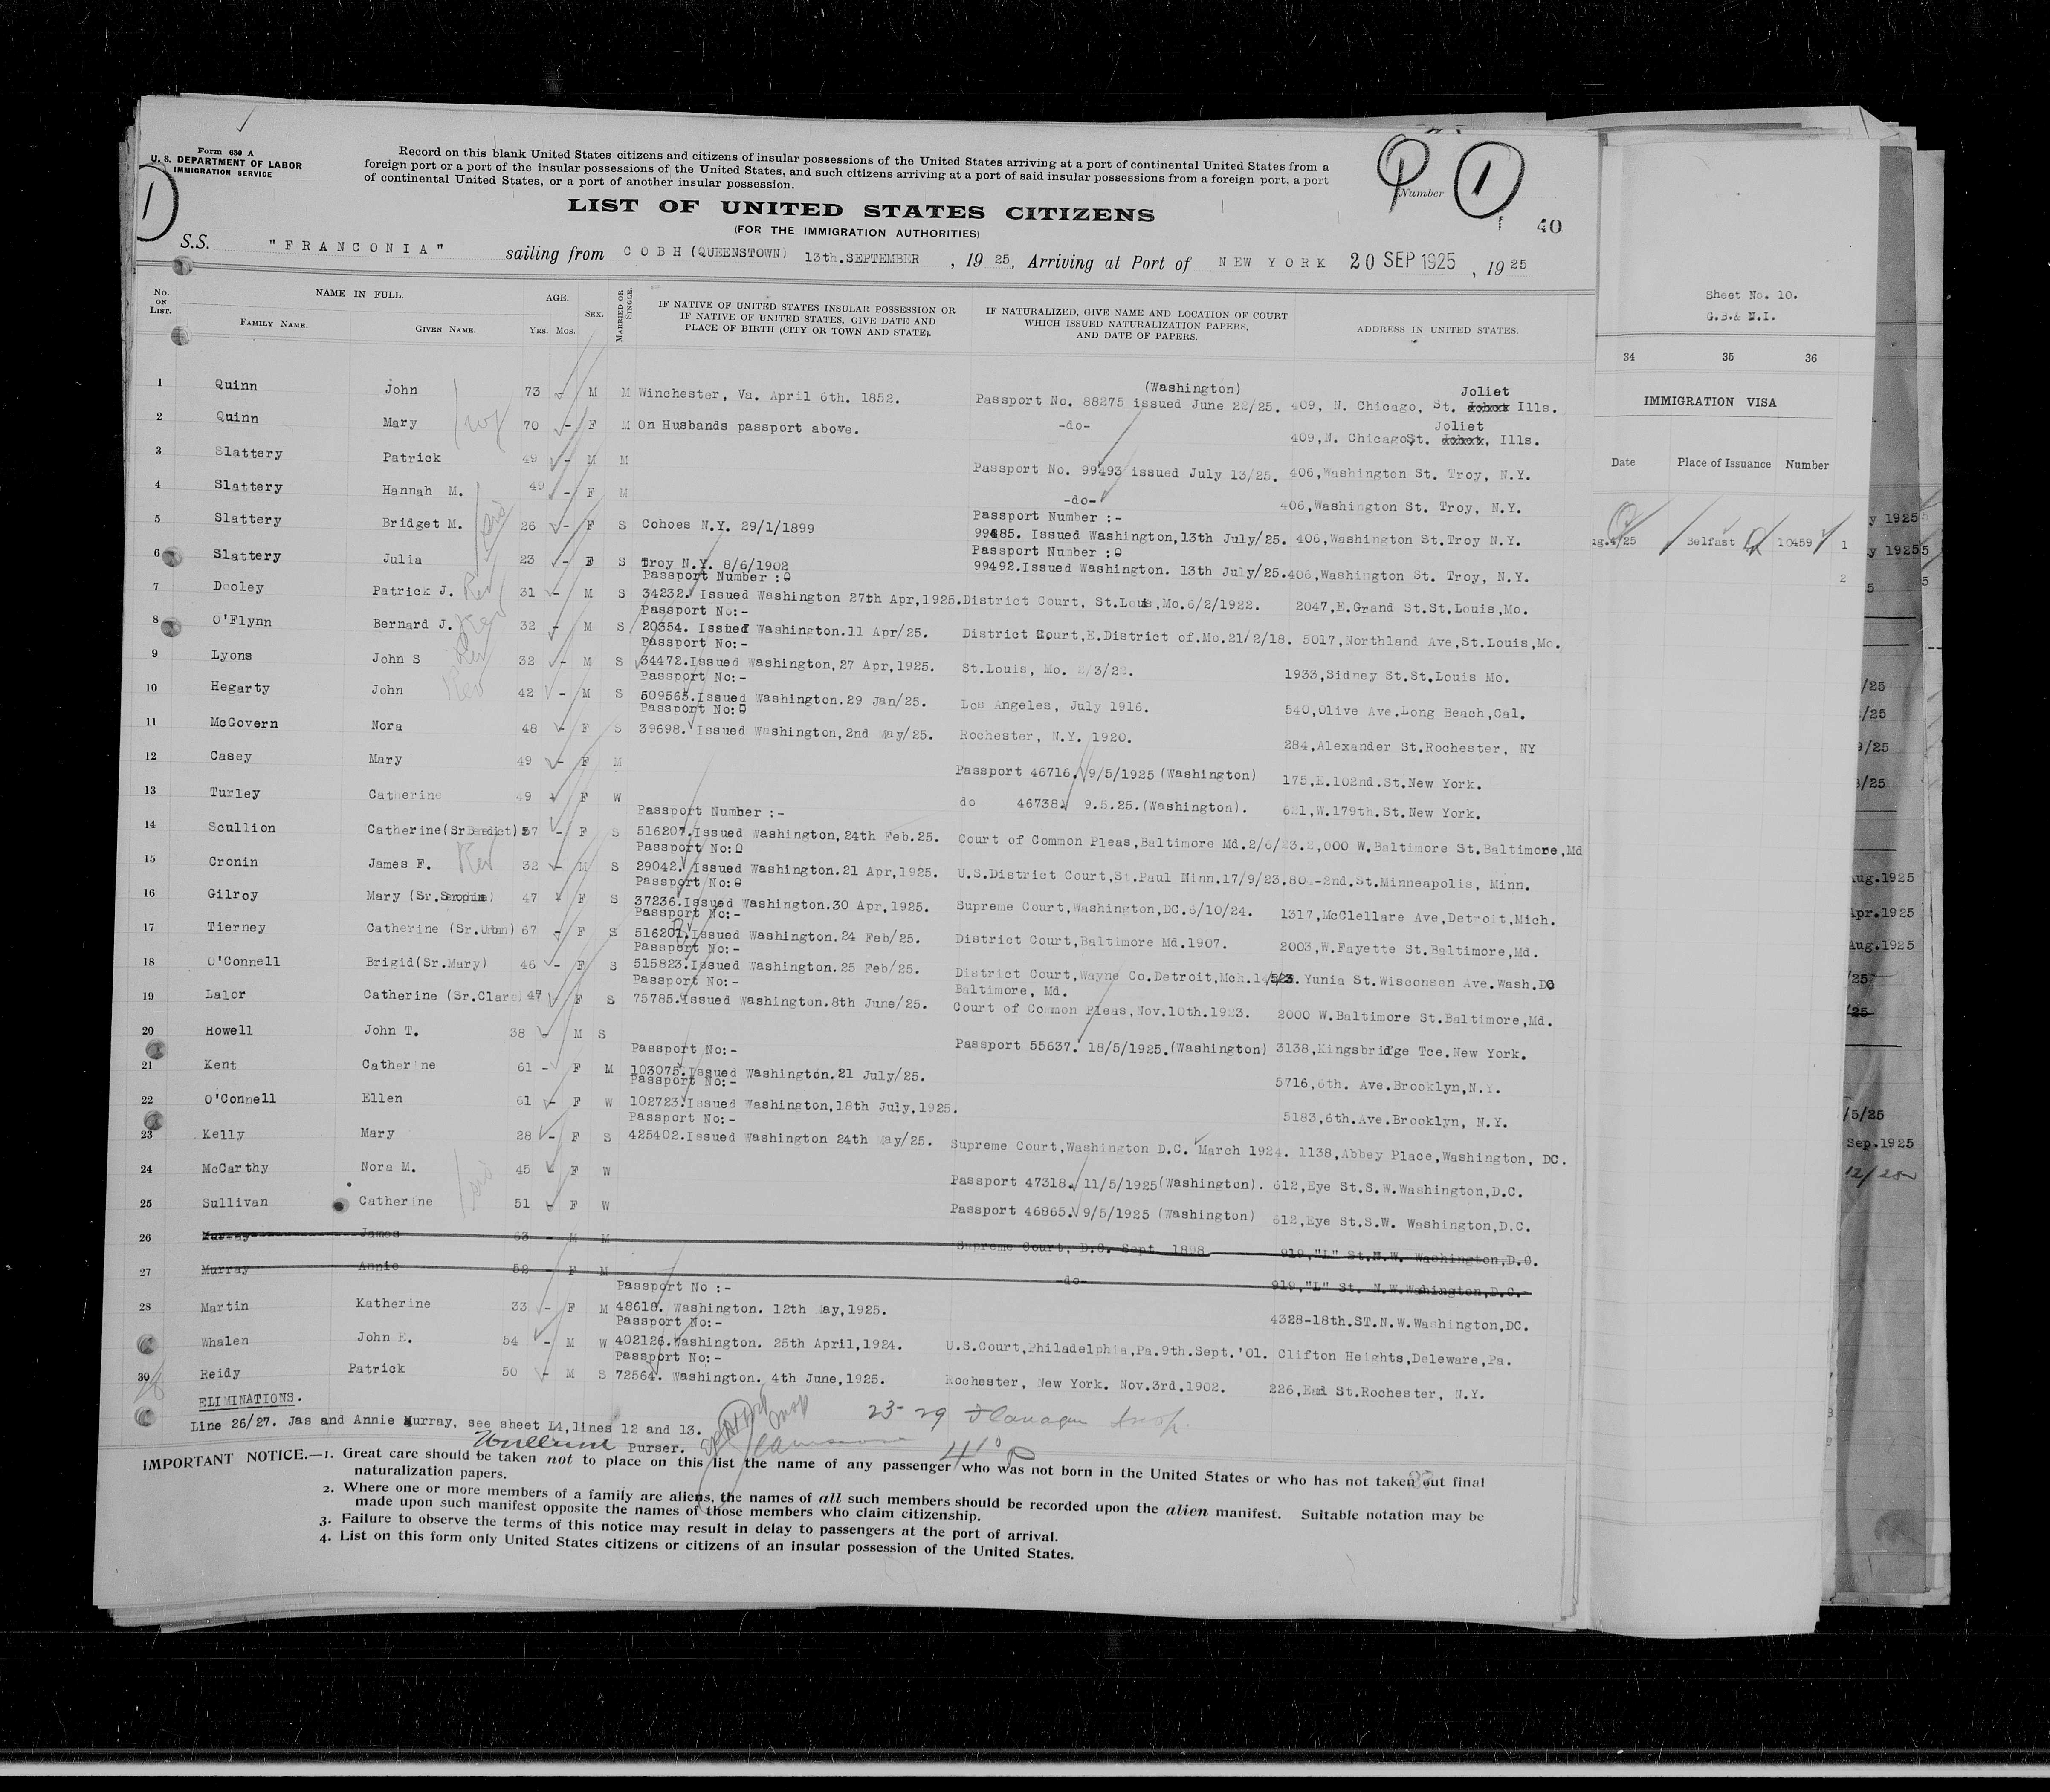 Form 630 A
U. S. DEPARTMENT OF LABOR
IMMIGRATION SERVICE
Record on this blank United States citizens and citizens of insular possessions of the United States arriving at a port of continental United States from a
foreign port or a port of the insular possessions of the United States, and such citizens arriving at a port of said insular possessions from a foreign port, a port
of continental United States, or a port of another insular possession.
1
Number
1
LIST OF UNITED STATES CITIZENS
(FOR THE IMMIGRATION AUTHORITIES)
40
S.S. "FRANCONIA" sailing from COBH (QUEENSTOWN) 13th.SEPTEMBER, 19 25, Arriving at Port of NEW YORK 20 SEP 1925, 19 25
No. ON LIST. NAME IN FULL. FAMILY NAME. GIVEN NAME. AGE. YRS. MOS. SEX. MARRIED OR SINGLE. IF NATIVE OF UNITED STATES INSULAR POSSESSION OR IF NATIVE OF UNITED STATES, GIVE DATE AND PLACE OF BIRTH (CITY OR TOWN AND STATE). IF NATURALIZED, GIVE NAME AND LOCATION OF COURT WHICH ISSUED NATURALIZATION PAPERS, AND DATE OF PAPERS. ADDRESS IN UNITED STATES.
(Washington) Joliet
1 Quinn John 73 - M M Winchester, Va. April 6th. 1852. Passport No. 88275 issued June 22/25. 409, N. Chicago, St. Ills.
Joliet
2 Quinn Mary 70 - F M On Husbands passport above. -do- 409,N. Chicago,St. , Ills.
3 Slattery Patrick 49 - M M Passport No. 99493 issued July 13/25. 406,Washington St. Troy, N.Y.
4 Slattery Hannah M. 49 - F M -do- 406,Washington St. Troy, N.Y.
Passport Number :-
5 Slattery Bridget M. 26 - F S Cohoes N.Y. 29/1/1899 99485. Issued Washington,13th July/25. 406,Washington St.Troy N.Y.
Passport Number :-
6 Slattery Julia 23 - F S Troy N.Y. 8/6/1902 99492.Issued Washington. 13th July/25. 406,Washington St. Troy, N.Y.
Passport Number :-
7 Dooley Patrick J. Rev 31 - M S 34232. Issued Washington 27th Apr,1925. District Court, St.Louis,Mo.6/2/1922. 2047,E.Grand St.St.Louis,Mo.
Passport No:-
8 O'Flynn Bernard J. Rev 32 - M S 20354. Issued Washington.11 Apr/25. District Court,E.District of.Mo.21/2/18. 5017,Northland Ave,St.Louis,Mo.
Passport No:-
9 Lyons John S Rev 32 - M S 34472.Issued Washington,27 Apr,1925. St.Louis, Mo. 1933,Sidney St.St.Louis Mo.
Passport No:-
10 Hegarty John Rev 42 - M S 509565.Issued Washington.29 Jan/25. Los Angeles, July 1916. 540,Olive Ave.Long Beach,Cal.
Passport No:-
11 McGovern Nora 48 - F S 39698. Issued Washington,2nd May/25. Rochester, N.Y. 1920. 284,Alexander St.Rochester, NY
12 Casey Mary 49 - F M Passport 46716. 9/5/1925 (Washington) 175,E.102nd.St.New York.
13 Turley Catherine 49 - F W do 46738. 9.5.25.(Washington). 621,W.179th.St.New York.
Passport Number :-
14 Scullion Catherine(Sr Benedict) 57 - F S 516207.Issued Washington,24th Feb.25. Court of Common Pleas,Baltimore Md.2/6/23. 2,000 W.Baltimore St.Baltimore,Md
Passport No:-
15 Cronin James F. Rev 32 - M S 29042. Issued Washington.21 Apr,1925. U.S.District Court,St.Paul Minn.17/9/23. 80 -2nd.St.Minneapolis, Minn.
Passport No:-
16 Gilroy Mary (Sr. ) 47 - F S 37236.Issued Washington.30 Apr,1925. Supreme Court,Washington,DC.6/10/24. 1317,McClellare Ave,Detroit,Mich.
Passport No:-
17 Tierney Catherine (Sr.Urban) 67 - F S 516201.Issued Washington.24 Feb/25. District Court,Baltimore Md.1907. 2003,W.Fayette St.Baltimore,Md.
Passport No:-
18 O'Connell Brigid(Sr.Mary) 46 - F S 515823.Issued Washington.25 Feb/25. District Court,Wayne Co.Detroit,Mch.14/5/23. Yunia St.Wisconsen Ave.Wash.DC
Passport No:- Baltimore, Md.
19 Lalor Catherine (Sr.Clare) 47 F S 75785.Issued Washington.8th June/25. Court of Common Pleas,Nov.10th.1923. 2000 W.Baltimore St.Baltimore,Md.
20 Howell John T. 38 - M S Passport 55637. 18/5/1925.(Washington) 3138,Kingsbridge Tce.New York.
Passport No:-
21 Kent Catherine 61 - F M 103075.Issued Washington.21 July/25. 5716,6th. Ave.Brooklyn,N.Y.
Passport No:-
22 O'Connell Ellen 61 - F W 102723.Issued Washington,18th July,1925. 5183,6th.Ave.Brooklyn, N.Y.
Passport No:-
23 Kelly Mary 28 - F S 425402.Issued Washington 24th May/25. Supreme Court,Washington D.C. March 1924. 1138,Abbey Place,Washington, DC.
24 McCarthy Nora M. 45 - F W Passport 47318. 11/5/1925(Washington). 612,Eye St.S.W.Washington,D.C.
25 Sullivan Catherine 51 - F W Passport 46865. 9/5/1925 (Washington) 612,Eye St.S.W. Washington,D.C.
26 Murray James 63 - M M Supreme Court, D.C. Sept. 1898 919,"L" St.N.W. Washington,D.C.
27 Murray Annie 52 - F M -do- 919,"L" St. N.W.Wahington,D.C.
Passport No :-
28 Martin Katherine 33 - F M 48618. Washington. 12th May,1925. 4328-18th.ST.N.W.Washington,DC.
Passport No:-
Whalen John E. 54 - M W 402126.Washington. 25th April,1924. U.S.Court,Philadelphia,Pa.9th.Sept.'01. Clifton Heights,Deleware,Pa.
Passport No:-
30 Reidy Patrick 50 - M S 72564. Washington. 4th June,1925. Rochester, New York. Nov.3rd.1902. 226, St.Rochester, N.Y.
ELIMINATIONS.
Line 26/27. Jas and Annie Murray, see sheet 14,lines 12 and 13.
Purser.
23-29 Flanagan Insp.
IMPORTANT NOTICE.—1. Great care should be taken not to place on this list the name of any passenger who was not born in the United States or who has not taken out final
naturalization papers.
2. Where one or more members of a family are aliens, the names of all such members should be recorded upon the alien manifest. Suitable notation may be
made upon such manifest opposite the names of those members who claim citizenship.
3. Failure to observe the terms of this notice may result in delay to passengers at the port of arrival.
4. List on this form only United States citizens or citizens of an insular possession of the United States.
Sheet No. 10.
G.B.& N.I.
34 35 36
IMMIGRATION VISA
Date Place of Issuance Number
Belfast 10459 1
2